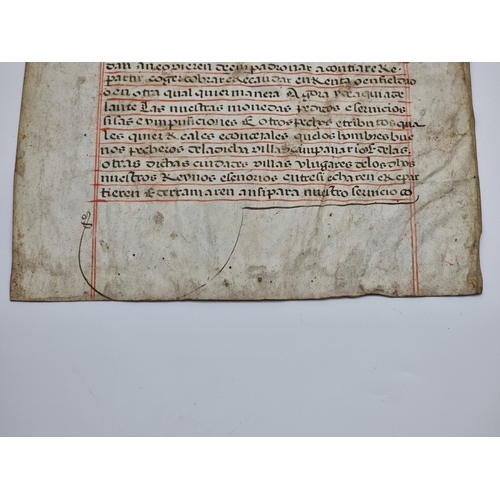 dan an copieren de empadronar a contiar e Re-
partir coger cobrar e Recaudar en Renta o en fieldro
o en otra qual quier manera Agora y de aqui ade
lante Las nuestras monedas pedidos e seruicios
sisas e ympusiciones E otros pechos e tributos qua
les quier Reales e conçejales quelos hombres bue
nos pecheros de la dicha villa E de las
otras dichas ciudades villas y lugares delos dhos
nuestros Reynos e señorios entresi echaren e Repar
tieren E derramaren ansi para nuestro seruicio co